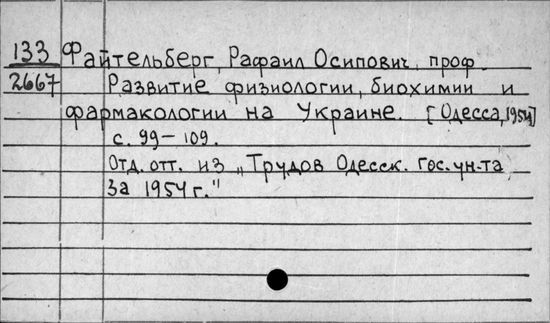 133 Файтельберг, Рафаил Осипович, проф.
2667 Развитие физиологии, биохимии и
фармакологии на Украине. [Одесса, 1954]
с. 99-109.
Отд. отт. из „Трудов Одесск. гос. ун-та
за 1954 г."